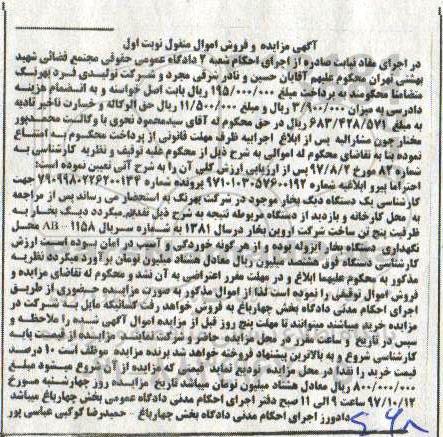 آگهی مزایده و فروش اموال منقول نوبت اول
در اجرای مفاد نیابت صادره از اجرای احکام شعبه ۲ دادگاه عمومی حقوقی مجتمع قضائی شهید
بهشتی تهران محکوم علیهم آقایان حسین و نادر شرقی مجرد و شرکت تولیدی فرد بهرنگ
متضامنا محکومند به پرداخت مبلغ ۱۹۵/۰۰۰/۰۰۰ ریال بابت اصل خواسته و به انضمام هزینه
دادرسی به میزان ۳/۹۰۰/۰۰۰ ریال و مبلغ ۱۱/۵۰۰/۰۰۰ ریال حق الوکاله و خسارت تاخیر تادیه
به مبلغ ۶۸۳/۴۲۸/۵۷۱ ریال در حق محکوم له آقای سیدمحمود نحوی با وکالت محمدپور
مختار چون مشارالیه پس از ابلاغ اجراییه ظرف مهلت قانونی از پرداخت محکوم به امتناع
نموده بنا به تقاضای محکوم له اموالی به شرح ذیل از محکوم علیه توقیف و نظریه کارشناسی به
شماره ۸۲ مورخ ۹۷/۸/۲ پس از ارزیابی ارزش کلی آن را به شرح آتی تعیین نموده است:
احتراما پیرو ابلاغیه شماره ۹۷۱۰۱۰۳۰۵۷۶۰۰۱۹۲ پرونده شماره ۷۹۰۹۹۸۰۲۲۶۲۰۰۱۲۴ جهت
کارشناسی یک دستگاه دیگ بخار موجود در شرکت بهرنگ به استحضار می رساند پس از مراجعه
به محل کارخانه و بازدید از دستگاه مربوطه نتیجه به شرح ذیل تقدیم میگردد دیگ بخار به
ظرفیت پنج تن ساخت شرکت اروین بخار درسال ۱۳۸۱ به شماره سریال AB - ۱۱۵۸ محل
نگهداری دستگاه بخار ایزوله بوده و از هر گونه خوردگی و آسیب در امان بوده است ارزش
کارشناسی دستگاه فوق هشتصد میلیون ریال معادل هشتاد میلیون تومان برآورد میگردد نظریه
مذکور به محکوم علیهما ابلاغ و در مهلت مقرر اعتراضی به آن نشد و محکوم له تقاضای مزایده و
فروش اموال توقیفی را نموده است لذا از اموال مذکور به صورت مزایده حضوری از طریق
اجرای احکام مدنی دادگاه بخش چهارباغ به فروش خواهد رفت کسانیکه مایل به شرکت در
مزایده خرید میباشند میتوانند تا مهلت پنج روز قبل از مزایده اموال آگهی شده را ملاحظه و
سپس در تاریخ و ساعت مقرر در محل مزایده حاضر و شرکت نمایند. مزایده از قیمت پایه
کارشناسی شروع و به بالاترین پیشنهاد فروخته خواهد شد برنده مزایده موظف است ۱۰ درصد
قیمت خرید را نقدا در محل مزایده تودیع نماید قیمتی که مزایده از آن شروع میشود مبلغ
۸۰۰/۰۰۰/۰۰۰ ریال معادل هشتاد میلیون تومان میباشد تاریخ مزایده روز چهارشنبه مورخ
۹۷/۱۰/۱۲ ساعت ۹ الی ۱۱ صبح دفتر اجرای احکام مدنی دادگاه عمومی بخش چهارباغ میباشد
دادورز اجرای احکام مدنی دادگاه بخش چهارباغ - حمیدرضا کوکبی عباسی پور